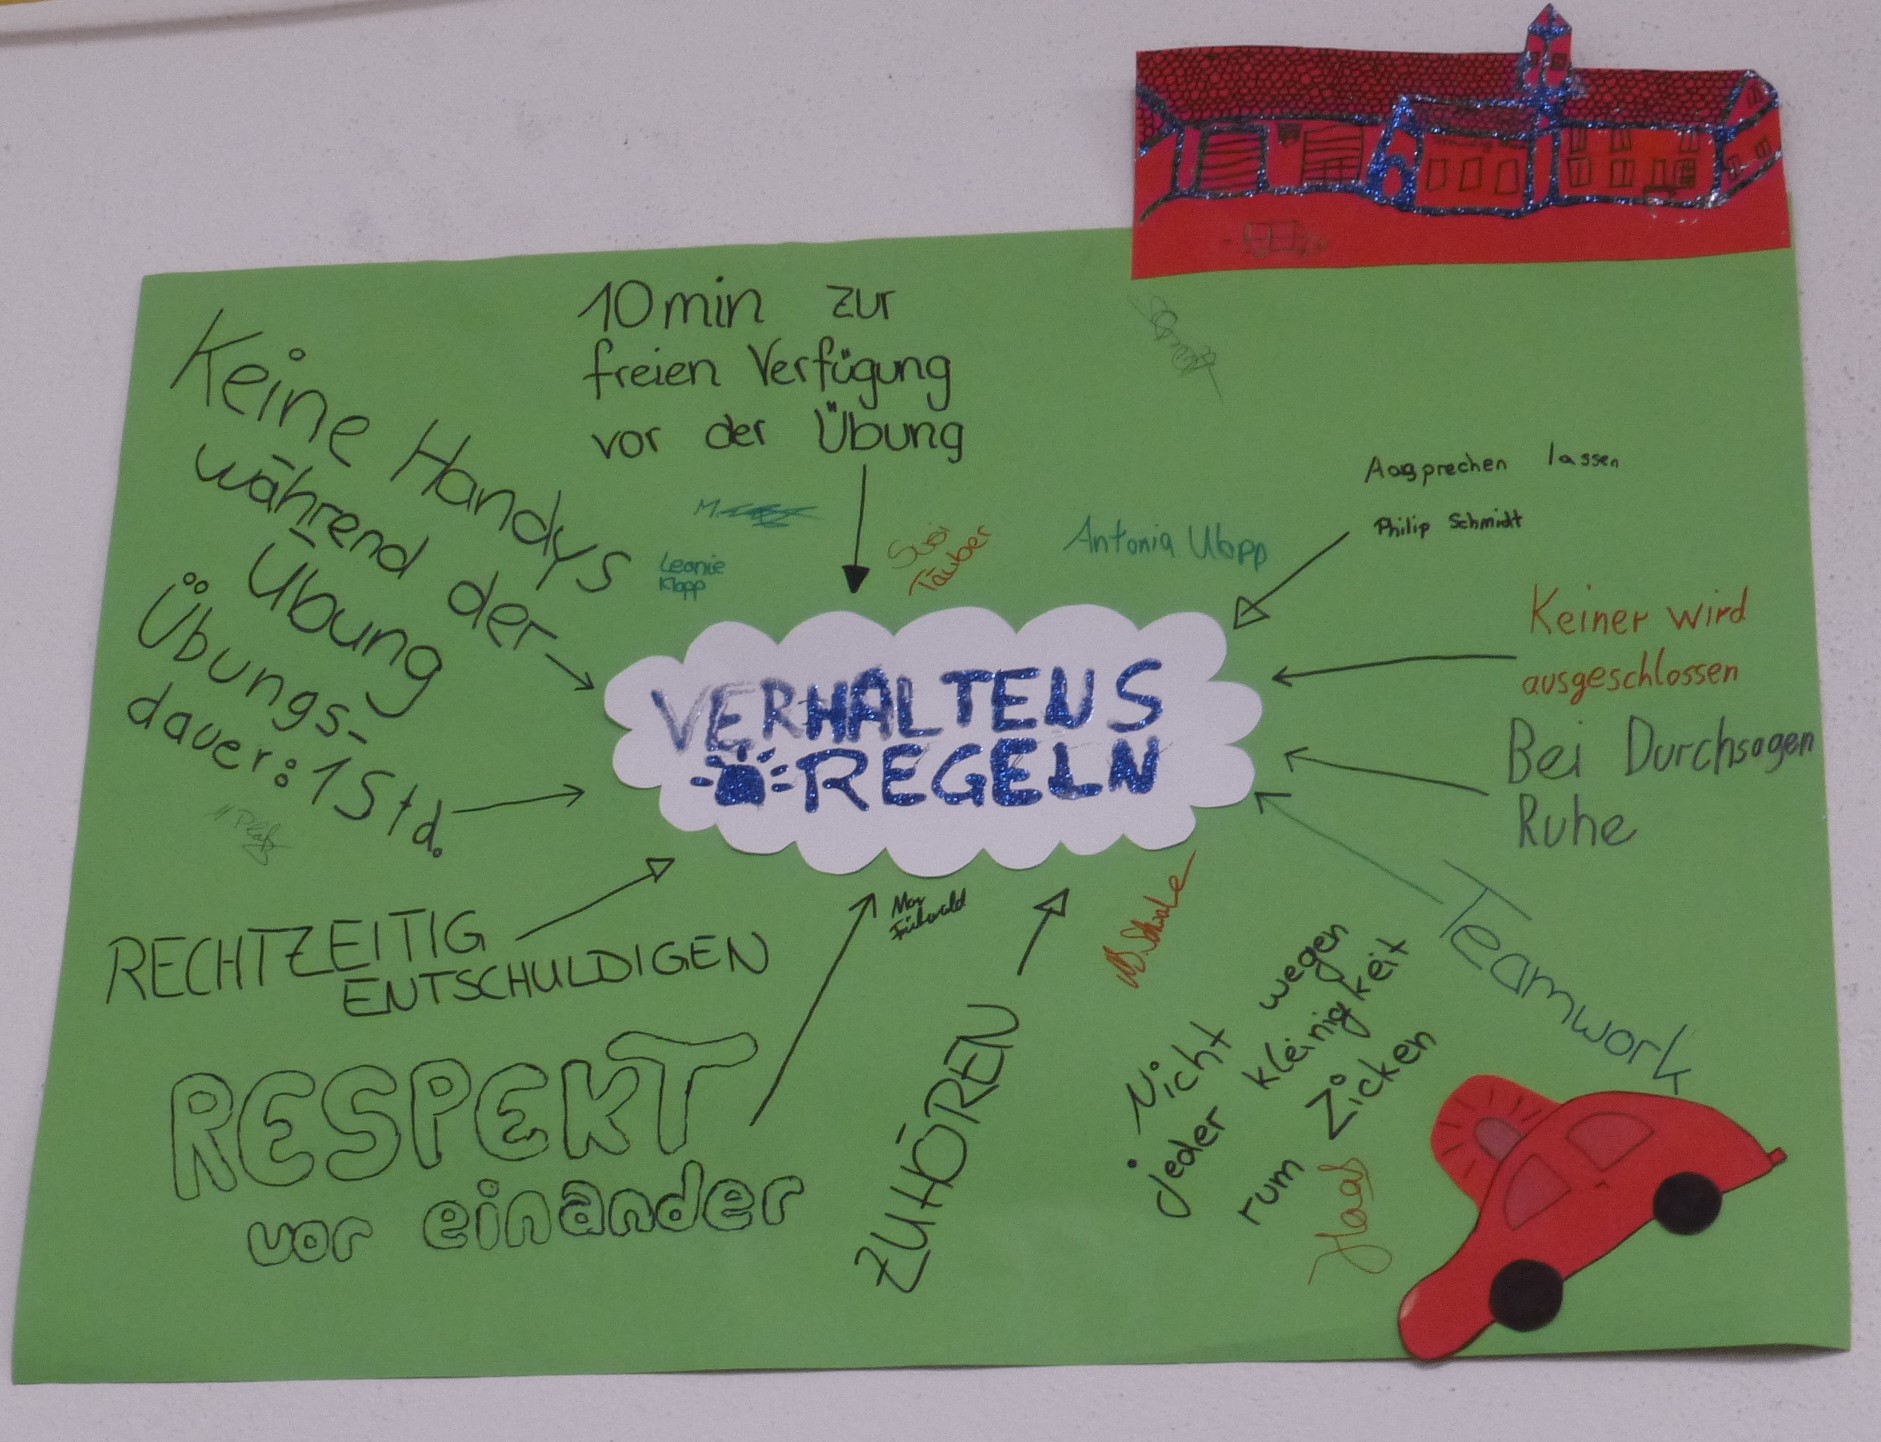 10min zur
freien Verfügung
vor der Übung
Keine Handys
während der
Übung
Übungs-
dauer: 1 Std.
Leonie
Klopp
Susi
Täuber
Antonia
Ausprechen lassen
Philip Schmidt
Keiner wird
ausgeschlossen
Bei Durchsagen
Ruhe
VERHALTENS
REGELN
RECHTZEITIG
ENTSCHULDIGEN
RESPEKT
vor einander
ZUHÖREN
Teamwork
Nicht wegen
jeder kleinigkeit
rum Zicken
Haas